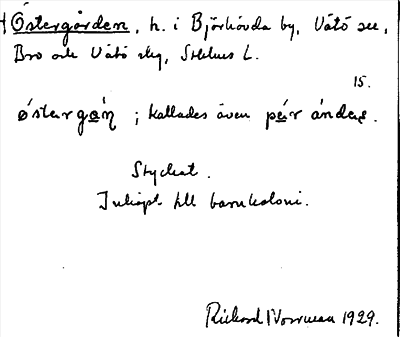 + Östergården, h. i Björkövda by, Vätö sn,
Bro och Vätö skg, Sthlms L.
15.
östergɑ́ṇ ; kallades även pɛr ándɛʂ.
Styckat.
Inköpt till barnkoloni.
Rickard Norrman 1929.